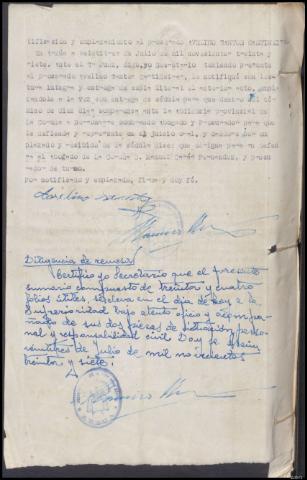 tificación y emplazamiento al procesado AVELINO SANTOS
En        a veintitres de Julio de mil novecientos treinta y
siete, ante el Sr Juez, digo, yo Secretario teniendo presente
al procesado Avelino Santos        , le notifiqué con lec-
tura integra y entrega de copia literal el anterior auto, empla-
zandole a la vez con entrega de cédula para que dentro del tér-
mino de diez dias comparezca ante la Audiencia provincial de
La Coruña a             nombrando Abogado y Procurador para que
le defienda y represente en el juicio oral, y enterado del em-
plazado y recibida de la cédula dijo: que designa para su defen-
sa al abogado de La Coruña D. Manuel         Fernandez, y procu-
rador de turno.
Por notificado y emplazado, firma y doy fé.
Avelino Santos
Diligencia de remesa:
Certifico yo Secretario que el presente
sumario compuesto de treinta y cuatro
folios utiles se eleva en el dia de hoy a la
Superioridad bajo atento oficio y acompa-
ñado de sus dos piezas de situación perso-
nal y responsabilidad civil. Doy fe.
veintitres de Julio de mil novecientos
treinta y siete.